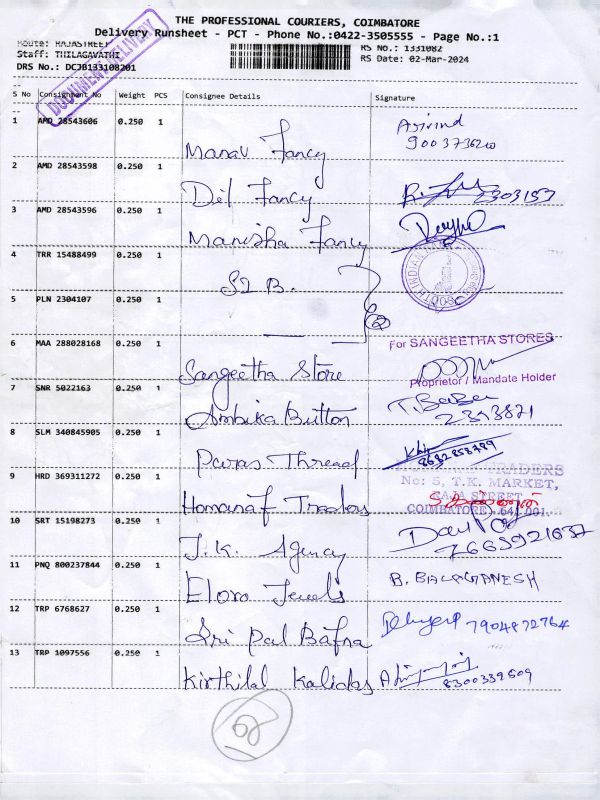 THE PROFESSIONAL COURIERS, COIMBATORE
Delivery Runsheet - PCT - Phone No.:0422-3505555 - Page No.:1
Route: RAJASTREET
RS No.: 1331082
Staff: THILAGAVATHI
RS Date: 02-Mar-2024
DRS No.: DCJB133108201
DOCUMENT DELIVERY
S No Consignment No Weight PCS Consignee Details Signature
1 AMD 28543606 0.250 1 Manav Fancy Arivind
9003736200
2 AMD 28543598 0.250 1 Dil Fancy 2303153
3 AMD 28543596 0.250 1 Manisha Fancy
4 TRR 15488499 0.250 1 SIB.
SOUTH INDIAN
5 PLN 2304107 0.250 1
6 MAA 288028168 0.250 1 Sangeetha Store
For SANGEETHA STORES
Proprietor / Mandate Holder
7 SNR 5022163 0.250 1 Ambika Button T. Babu
2393871
8 SLM 340845905 0.250 1 Paras Thread
9 HRD 369311272 0.250 1 Homanaf Traders
TRADERS
No: 5, T.K. MARKET,
RAJA STREET
COIMBATORE, 641 001.
10 SRT 15198273 0.250 1 J.K. Agency
7665921637
11 PNQ 800237844 0.250 1 Elora Jewels B. BALAGANESH
12 TRP 6768627 0.250 1 Sri Pal Bafna 7904872764
13 TRP 1097556 0.250 1 Kirthilal Kalidas
8300339609